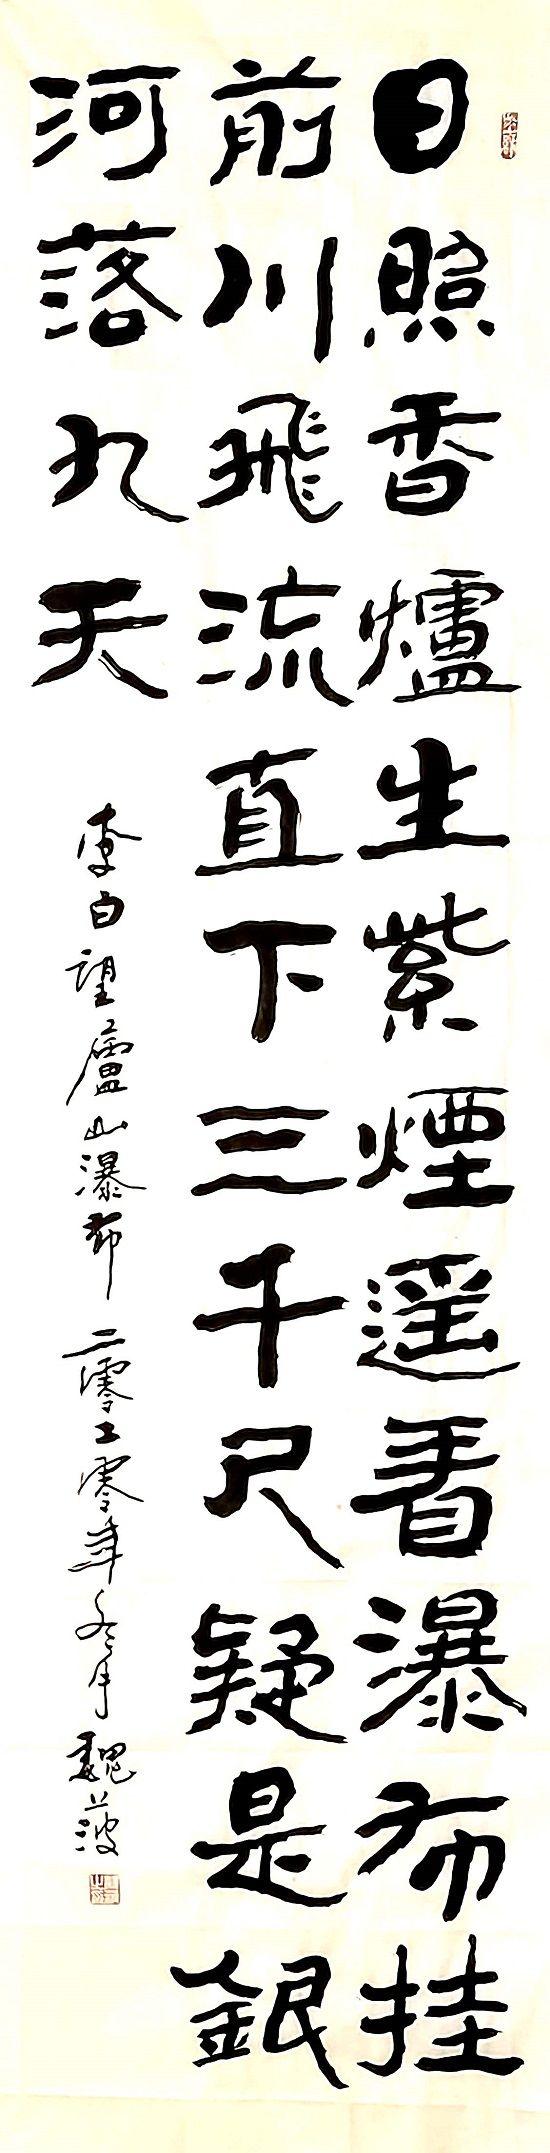 日照香爐生紫煙遥看瀑布挂
前川飛流直下三千尺疑是銀
河落九天
李白望廬山瀑布 二零二零年冬月 魏菠